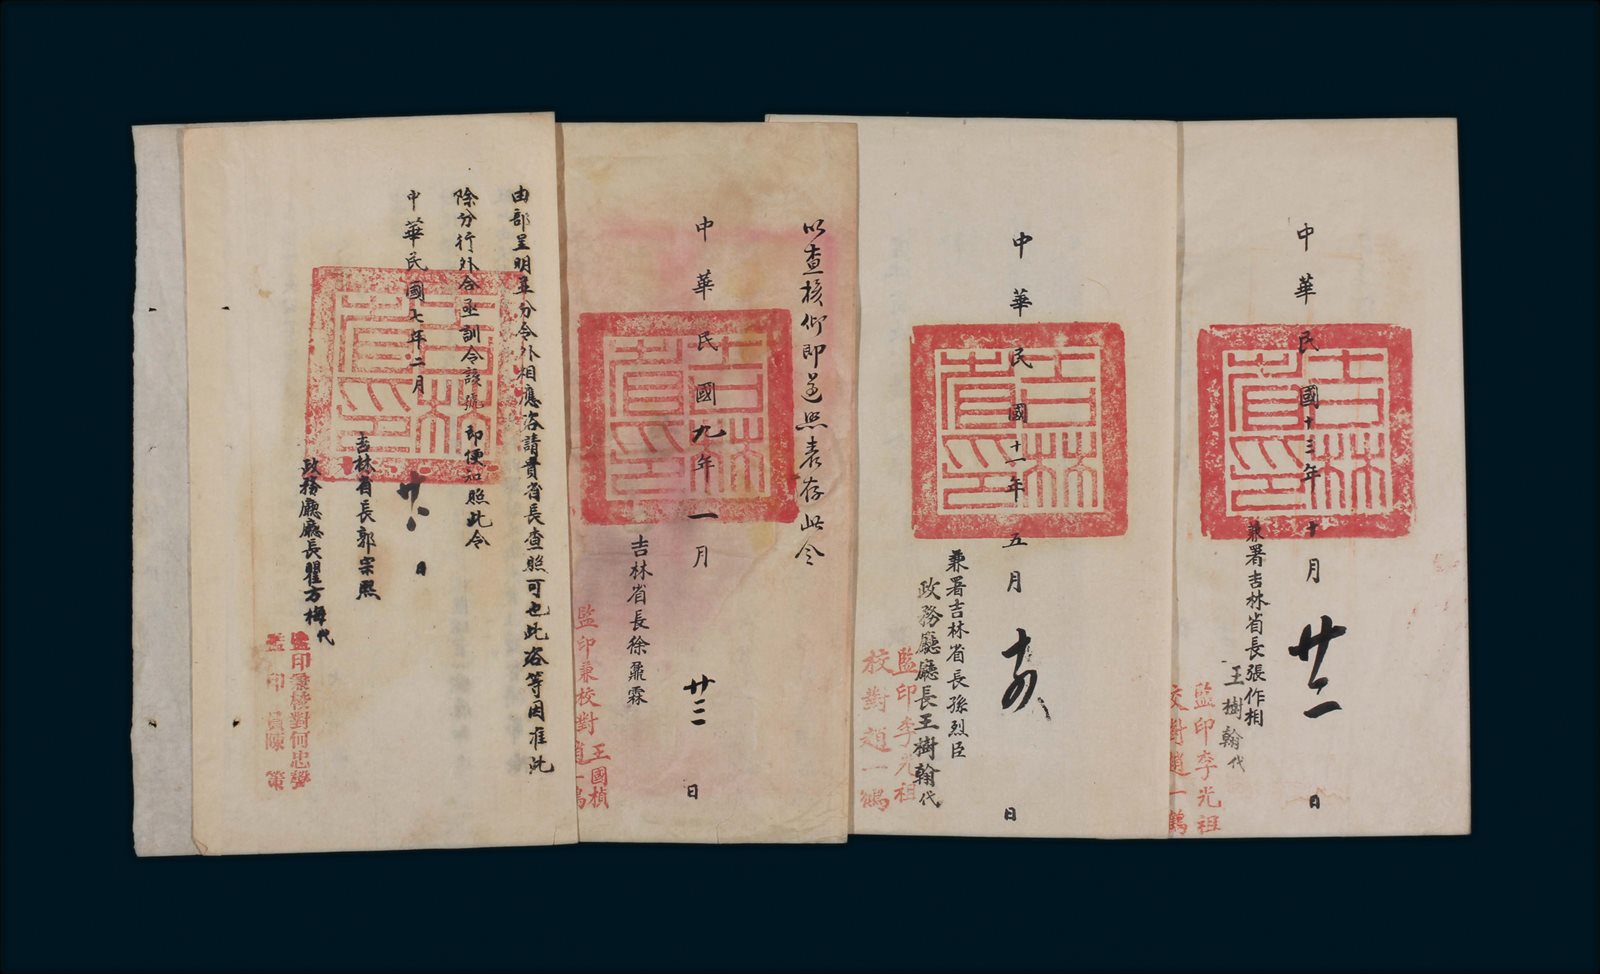 兼署吉林省長張作相
王樹翰代
中華民國十三年十月廿二日
監印李光祖
校對趙一鶴
中華民國十一年五月十四日
兼署吉林省長孫烈臣
政務廳廳長王樹翰代
監印李光祖
校對趙一鶴
以查核仰即遵照表存此令
中華民國九年一月廿三日
吉林省長徐鼐霖
監印兼校對
王國楨
趙一鶴
由部呈明並分令外相應咨請貴省長查照可也此咨等因准此
除分行外合亟訓令該號即便知照此令
中華民國七年二月廿八日
吉林省長郭宗熙
政務廳廳長瞿方梅代
監印兼校對何忠
監印員陳策
吉林省印
吉林省印
吉林省印
吉林省印